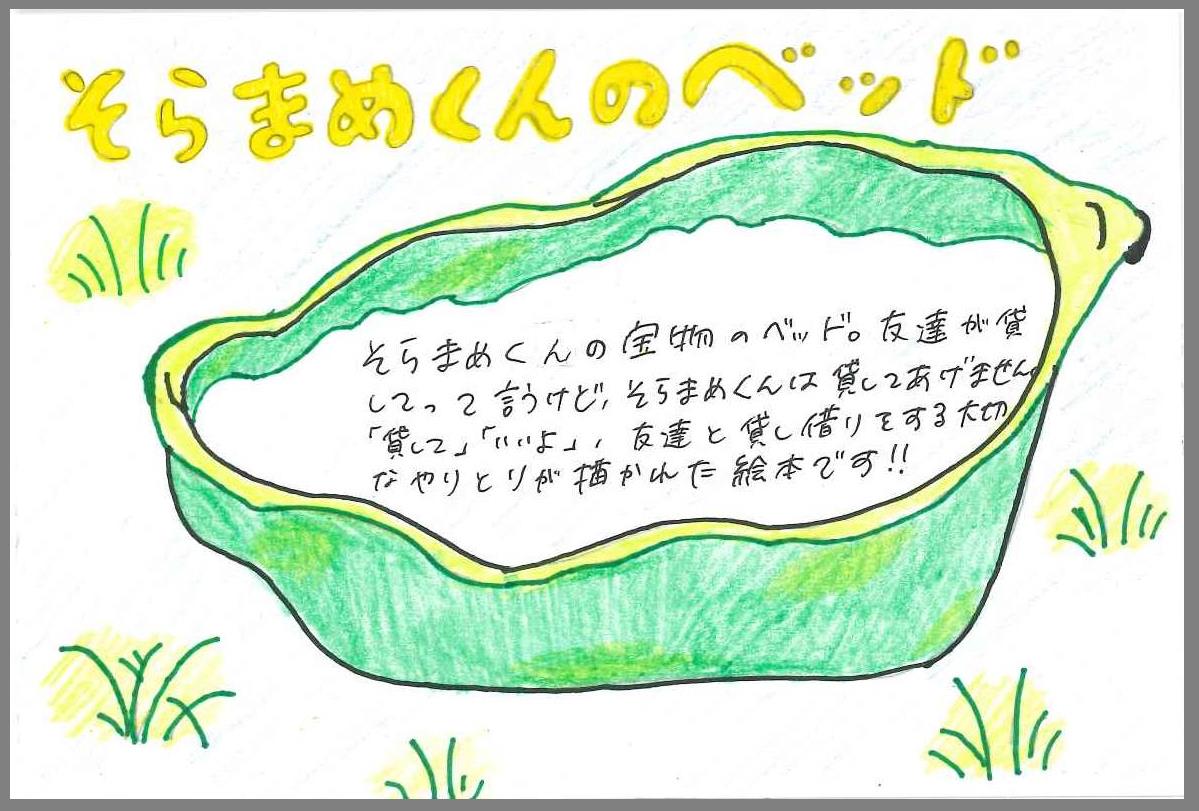 そらまめくんのベッド
そらまめくんの宝物のベッド。友達が貸
してって言うけど、そらまめくんは貸してあげません。
「貸して」「いいよ」、友達と貸し借りをする大切
なやりとりが描かれた絵本です!!